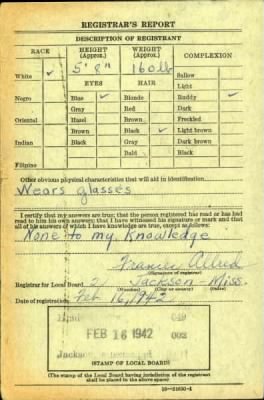 REGISTRAR'S REPORT
DESCRIPTION OF REGISTRANT
RACE HEIGHT (Approx.) WEIGHT (Approx.) COMPLEXION
5' 8" 160 lb
White ✓ Sallow
EYES HAIR Light
Negro Blue ✓ Blonde Ruddy ✓
Gray Red Dark
Oriental Hazel Brown Freckled
Brown Black ✓ Light brown
Indian Black Gray Dark brown
Bald Black
Filipino
Other obvious physical characteristics that will aid in identification
Wears glasses
I certify that my answers are true; that the person registered has read or has had
read to him his own answers; that I have witnessed his signature or mark and that
all of his answers of which I have knowledge are true, except as follows:
None to my Knowledge
Allred
(Signature of registrar)
Registrar for Local Board 2 Jackson - Miss.
(Number) (City or county) (State)
Date of registration Feb 16, 1942
049
FEB 16 1942 002
(STAMP OF LOCAL BOARD)
(The stamp of the Local Board having jurisdiction of the registrant
shall be placed in the above space)